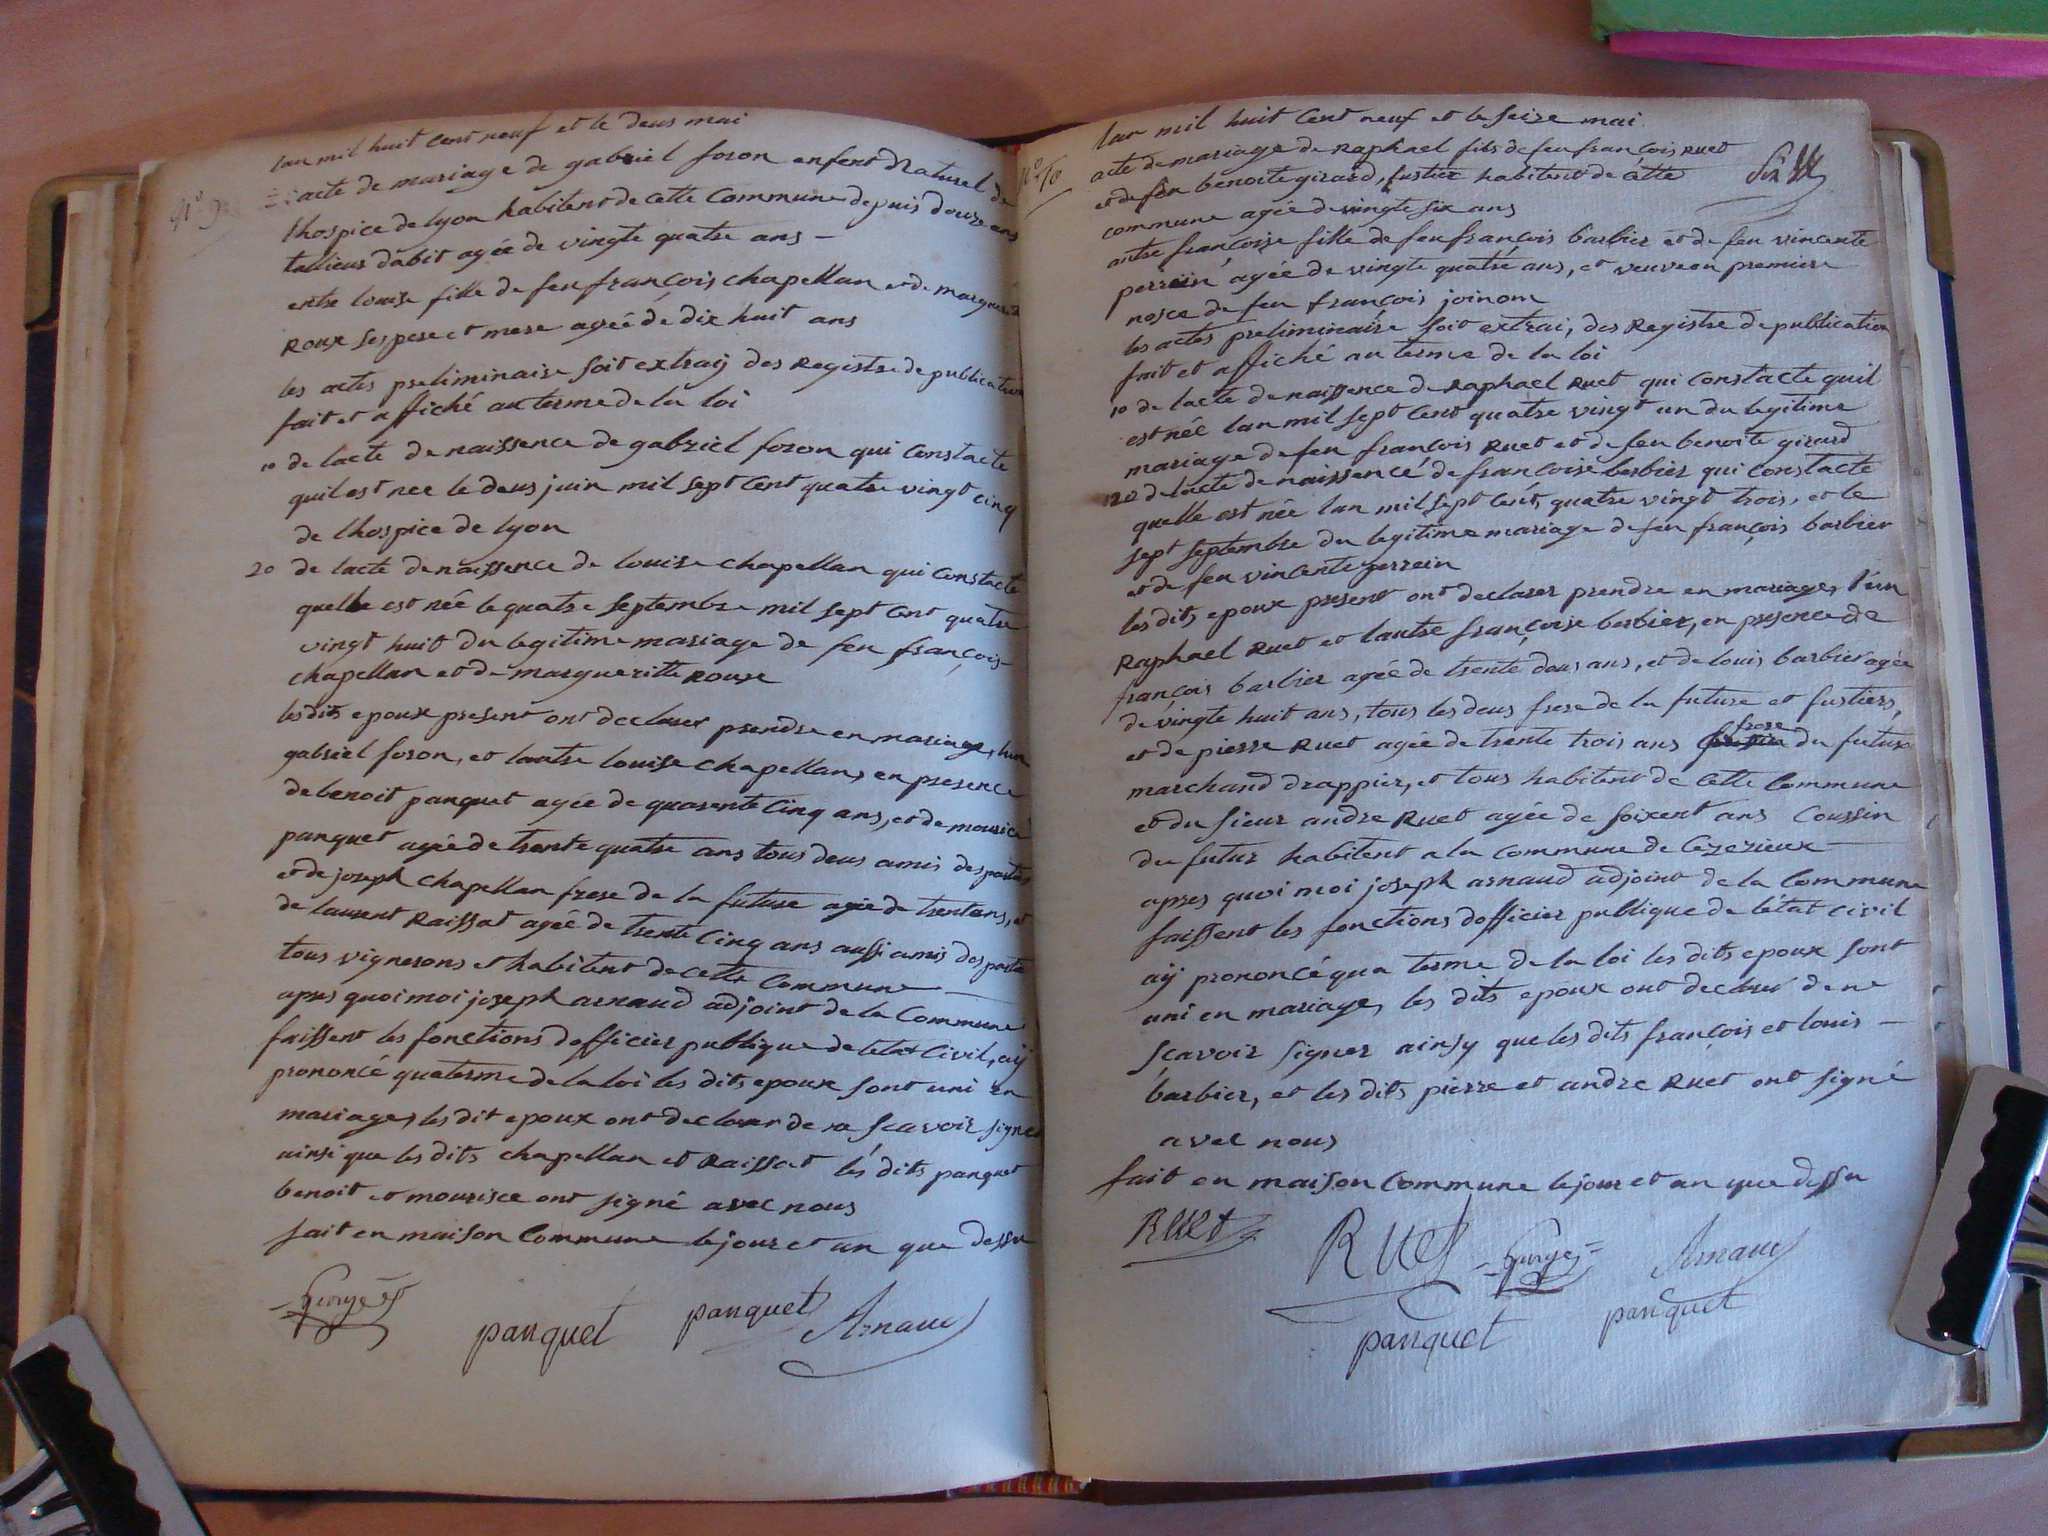 lan mil huit cent neuf et le deus mai
N° 9
acte de mariage de gabriel foron enfent Naturel de
lhospice de lyon habitent de cette Commune depuis douze ans
tallieur dabit agée de vingte quatre ans —
entre louise fille de feu françois chapellan et de marguerite
Roux ses pere et mere agéé de dix huit ans
les actes preliminaire soit extraij des Registre de publication
fait et affiché au terme de la loi
1o de lacte de naissence de gabriel foron qui Constacte
quil est nee le deus juin mil sept Cent quatre vingt cinq
de lhospice de lyon
2o de lacte de naissence de louise chapellan qui Constacte
quelle est née le quatre septembre mil sept Cent quatre
vingt huit du legitime mariage de feu françois
chapellan et de margueritte Roux
les dits epoux present ont declarer prendre en mariage, lun
gabriel foron, et lautre louise chapellan, en presence
de benoit panquet agée de quarente Cinq ans, et de mourice
panquet agée de trente quatre ans tous deus amis des parties
et de joseph chapellan frere de la future agée de trent ans, et
de laurent Raissat agée de trente Cinq ans aussi amis des partie
tous vignerons et habitent de cette Commune
apres quoi moi joseph arnaud adjoint de la Commune
faissent les fonctions dofficier publique de letat Civil, aij
prononcé qua terme de la loi les dits epoux sont uni en
mariage, les dit epoux ont declarer de ne scavoir signer
ainsi que les dits chapellan et Raissat les dits panquet
benoit et mourisce ont signé avec nous
fait en maison Commune le jour et an que dessu
panquet panquet Arnaud
lan mil huit Cent neuf et le seize mai
N° 10
acte de mariage de Raphael fils de feu françois Ruet
et de feu benoite girard, fustier habitent de cétte
commune agée de vingte six ans
autre françoise fille de feu françois barbier et de feu vincente
perrein agée de vingte quatre ans, et veuve en premiere
nosce de feu françois joinom
les actes preliminaire soit extrai, des Registre de publication
fait et affiché au terme de la loi
1o de lacte de naissence de Raphael Ruet qui Constacte quil
est née lan mil sept Cent quatre vingt un du legitime
mariage de feu françois Ruet et de feu benoite girard
2o de lacte de naissencé de françoise barbier qui constacte
quelle est née lan mil sept Cent quatre vingt trois, et le
sept septembre du legitime mariage de feu françois barbier
et de feu vincente perrein
les dits epoux present ont declarer prendre en mariage, l'un
Raphael Ruet et lautre françoise barbier, en presence de
françois barbier agée de trente deus ans, et de louis barbier agée
de vingte huit ans, tous les deus frere de la future et fustiers,
frere
et de pierre Ruet agée de trente trois ans du futur
marchand drappier, et tous habitent de cette Commune
et du sieur andre Ruet agée de soixent ans Coussin
du futur habitent a la Commune de Cezerieux
apres quoi moi joseph arnaud adjoint de la Commune
faissent les fonctions dofficier publique de létat civil
aij prononcé qua terme de la loi les dits epoux sont
uni en mariage, les dits epoux ont declaré de ne
scavoir signer ainsy que les dits françois et louis —
barbier, et les dits pierre et andre Ruet ont signé
avec nous
fait en maison Commune le jour et an que dessu
Ruet Ruet Arnaud
panquet panquet